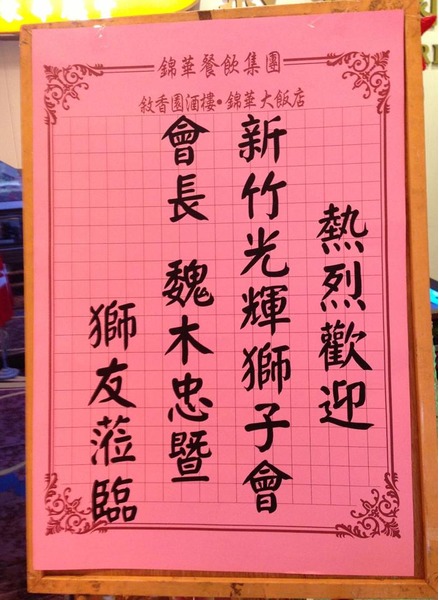 錦華餐飲集團
敘香園酒樓•錦華大飯店
熱烈歡迎
新竹光輝獅子會
會長 魏木忠暨
獅友蒞臨